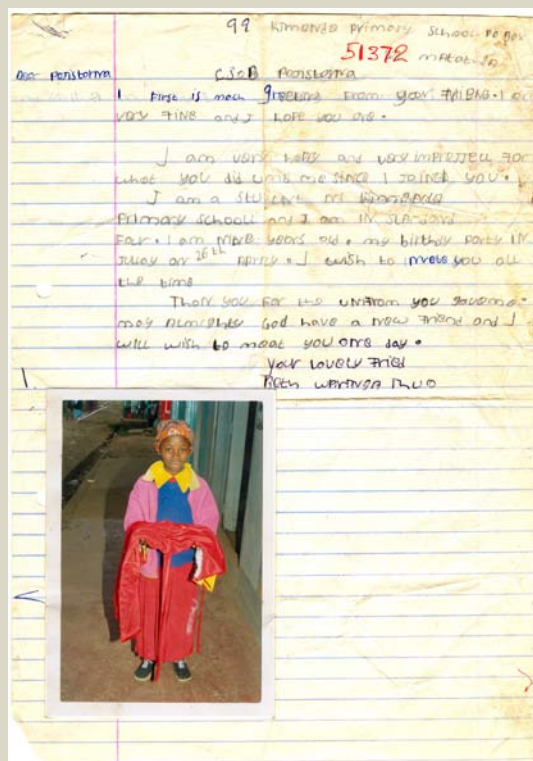 99 Kimende primary school po Box
51372
Dear Paristorna
C.S.O.B Paristorna
1 First is much greeting From your FRIEND. I am
very FINE and I hope you are.
I am very happy and very impressed For
what you did me since I Joined you.
I am a student Kimende
Primary school and I am IN
Four. I am nine years old. my birthday party IN
on 26th I wish to invete you all
the time
Thank you For the uniform you gave me.
may Almighty God have a new Friend and I
will wish to meat you one day.
your lovely Fried
Beth Thuo
1.